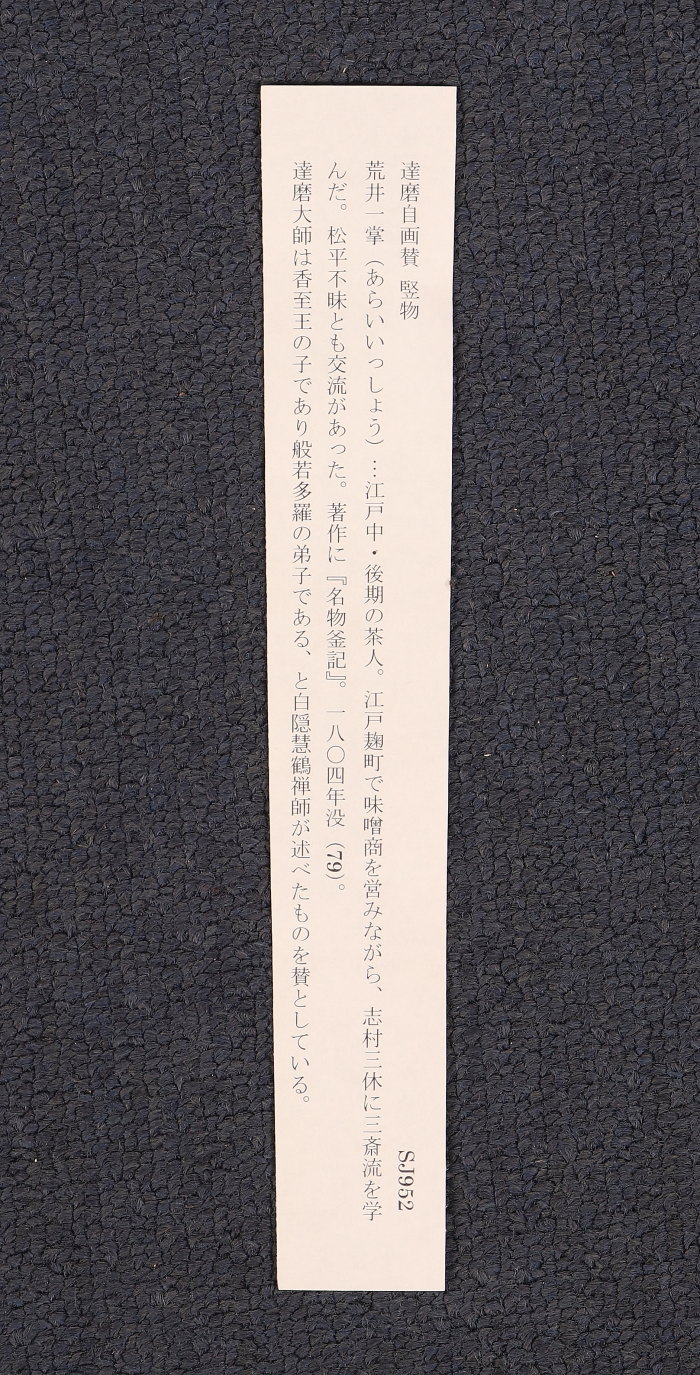 達磨自画賛 竪物
SJ952
荒井一掌（あらいいっしょう）…江戸中・後期の茶人。江戸麹町で味噌商を営みながら、志村三休に三斎流を学
んだ。松平不昧とも交流があった。著作に『名物釜記』。一八〇四年没（79）。
達磨大師は香至王の子であり般若多羅の弟子である、と白隠慧鶴禅師が述べたものを賛としている。